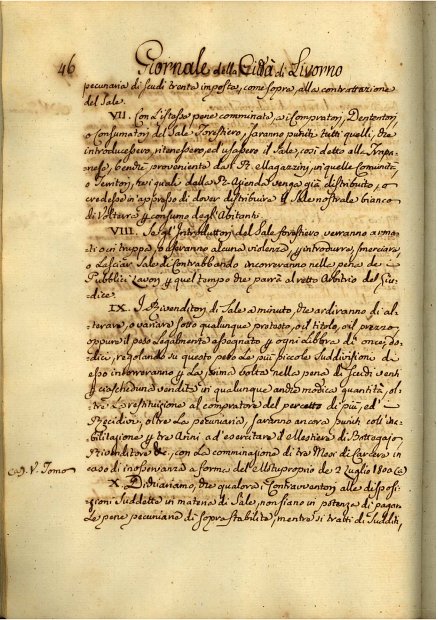 46 Giornale della Città di Livorno
pecuniaria di scudi trenta imposta, come sopra, alla contrattazione
del Sale.
VII. Con L'istesse pene comminate a i Compratori, Detentori
o Consumatori del Sale forestiero, saranno puniti tutti quelli, che
introducessero, ritenessero, ed usassero il Sale, così detto alla Trapa-
nese, benchè proveniente da i R. Magazzini, in quelle Comunità,
o Territori, ne i quali dalla R. Azienda venga già distribuito, o
credesse in appresso di dover distribuire il Sale nostrale bianco
di Volterra p consumo degl'Abitanti.
VIII. Se gl'Introduttori del Sale forestiero verranno arma-
ti o in truppa, o useranno alcuna violenza, p introdurre, smerciare,
o Lasciar Sale di Contrabbando incorreranno nelle pene de i
Pubblici Lavori p quel tempo che parrà al retto Arbitrio del Giu-
dice.
IX. I Rivenditori di Sale a minuto, che ardiranno di al-
terare, o variare sotto qualunque pretesto, o il titolo, o il prezzo,
oppure il peso legalmente assegnato p ogni Libbra di once do-
dici, regolando su questo peso Le più piccole Suddivisioni di
esso incorreranno p La prima volta nella pena di scudi venti
p ciascheduna vendita in qualunque anche modica quantità, ol-
tre La restituzione al compratore del percetto di più, ed i
Recidivi, oltre La pecuniaria, saranno ancora puniti coll'ina-
bilitazione p tre Anni ad esercitare il Mestiere di Bottegajo
Rivenditore &c., con La comminazione di tre Mesi di Carcere in
caso di inosservanza a forma del Mottuproprio de 2 Luglio 1800 (a)
(a) V. Tomo
X. Dichiariamo, che qualora i Contravventori alle disposi-
zioni Suddette in materia di Sale, non siano in potenza di pagare
Le pene pecuniarie di sopra stabilite, mentre si tratti di Sudditi,